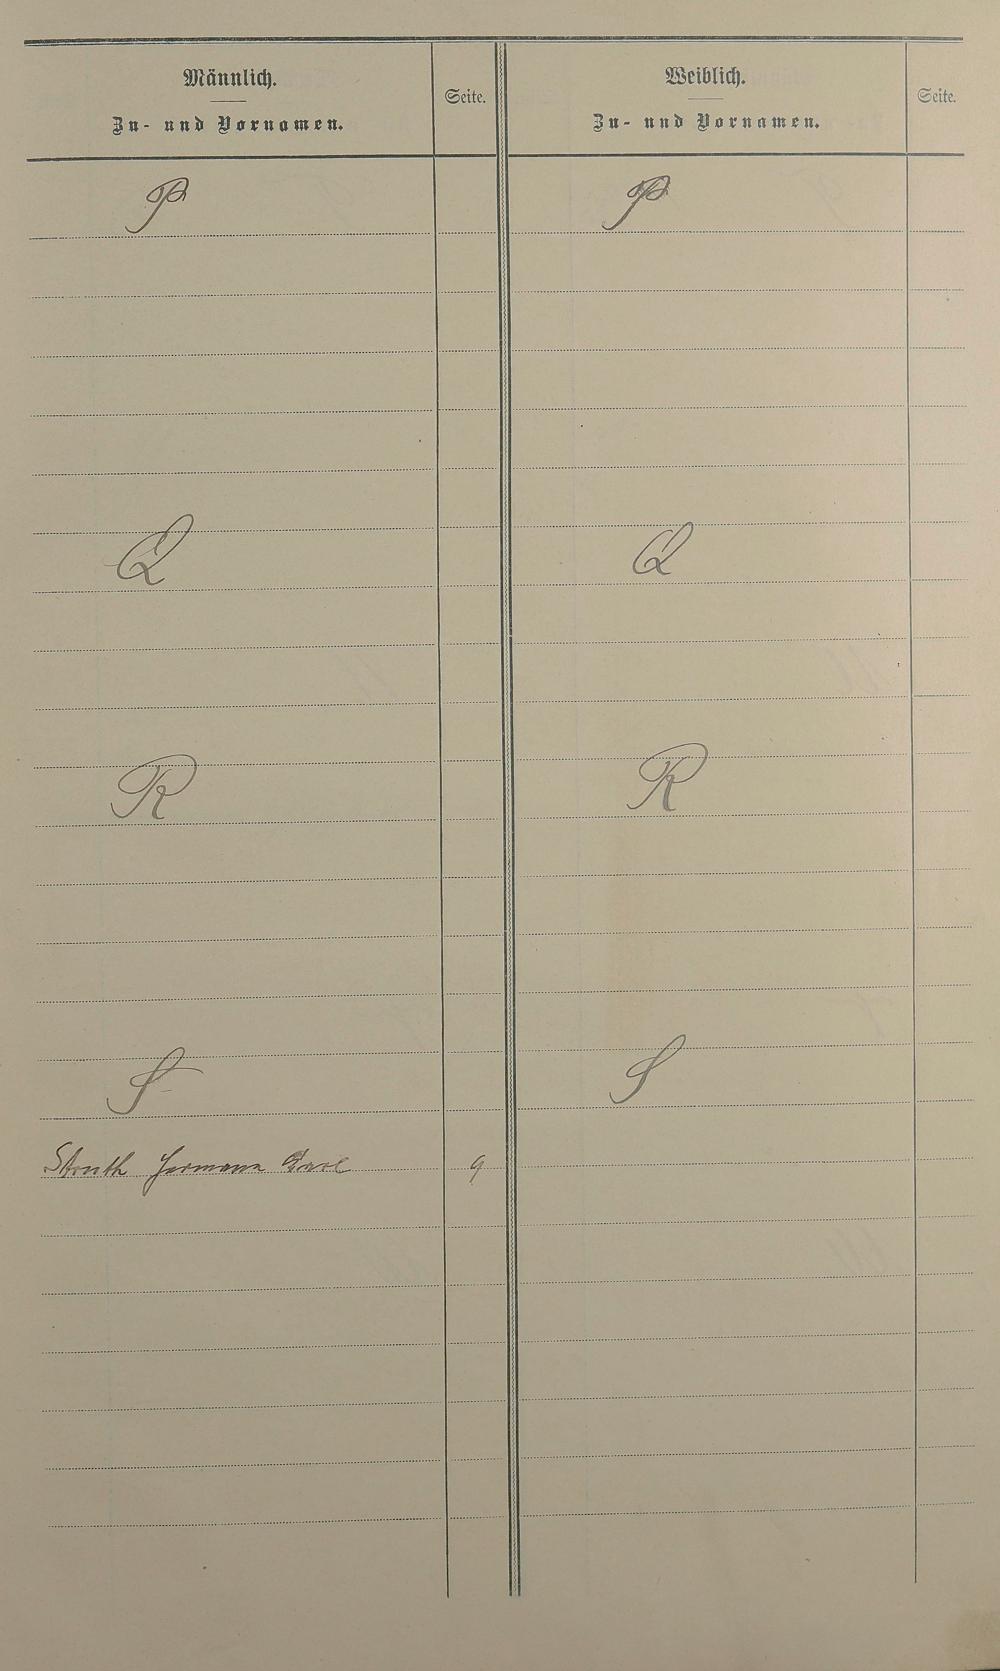 Männlich.
Zu- und Vornamen.
Seite.
Weiblich.
Zu- und Vornamen.
Seite.
P
P
Q
Q
R
R
S
S
Struth Hermann Carl 9